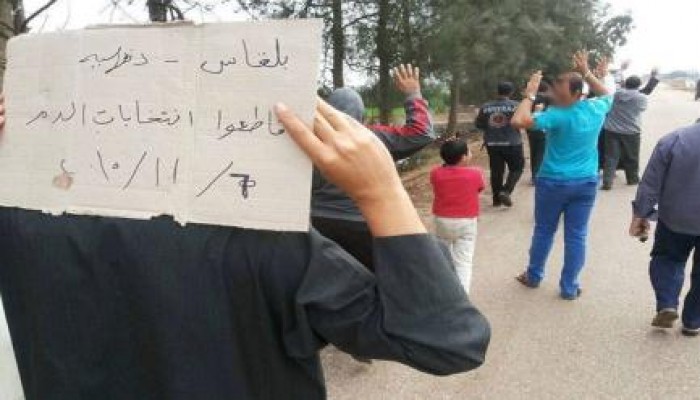 بلقاس - دقهلية
قاطعوا انتخابات الدم
١٠/١١/